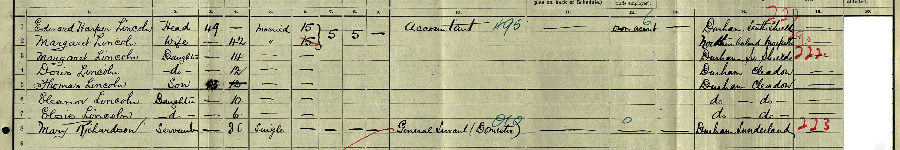 (give on back of Schedule.) trade employed.
1 Edward Harper Lincoln Head 49 — married 15 5 5 — Accountant 495 — own account 6 Durham South Shields
2 Margaret Lincoln Wife — 42 " 15 — —
3 Margaret Lincoln Daughter — 14 — — Durham So Shields 222
4 Doris Lincoln -do- — 12 — — Durham Cleadon
5 Thomas Lincoln Son — — Durham Cleadon
6 Eleanor Lincoln Daughter — 10 — — do — do —
7 Lincoln -do- — 6 — — do — do —
8 Mary Richardson Servant — 36 Single — — — — General Servant (Domestic) — — 0 — Durham Sunderland 223
9